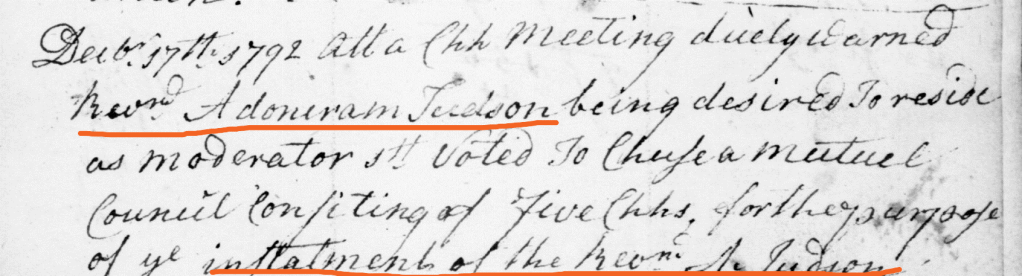 Decbr. 17th. 1792 Att a Chh Meeting duely warned
Revnd Adoniram Judson being desired To reside
as moderator 1st Voted To Chuse a Mutuel
Council Consiting of Five Chhs, for the purpose
of ye instalment of the Revnd. A. Judson